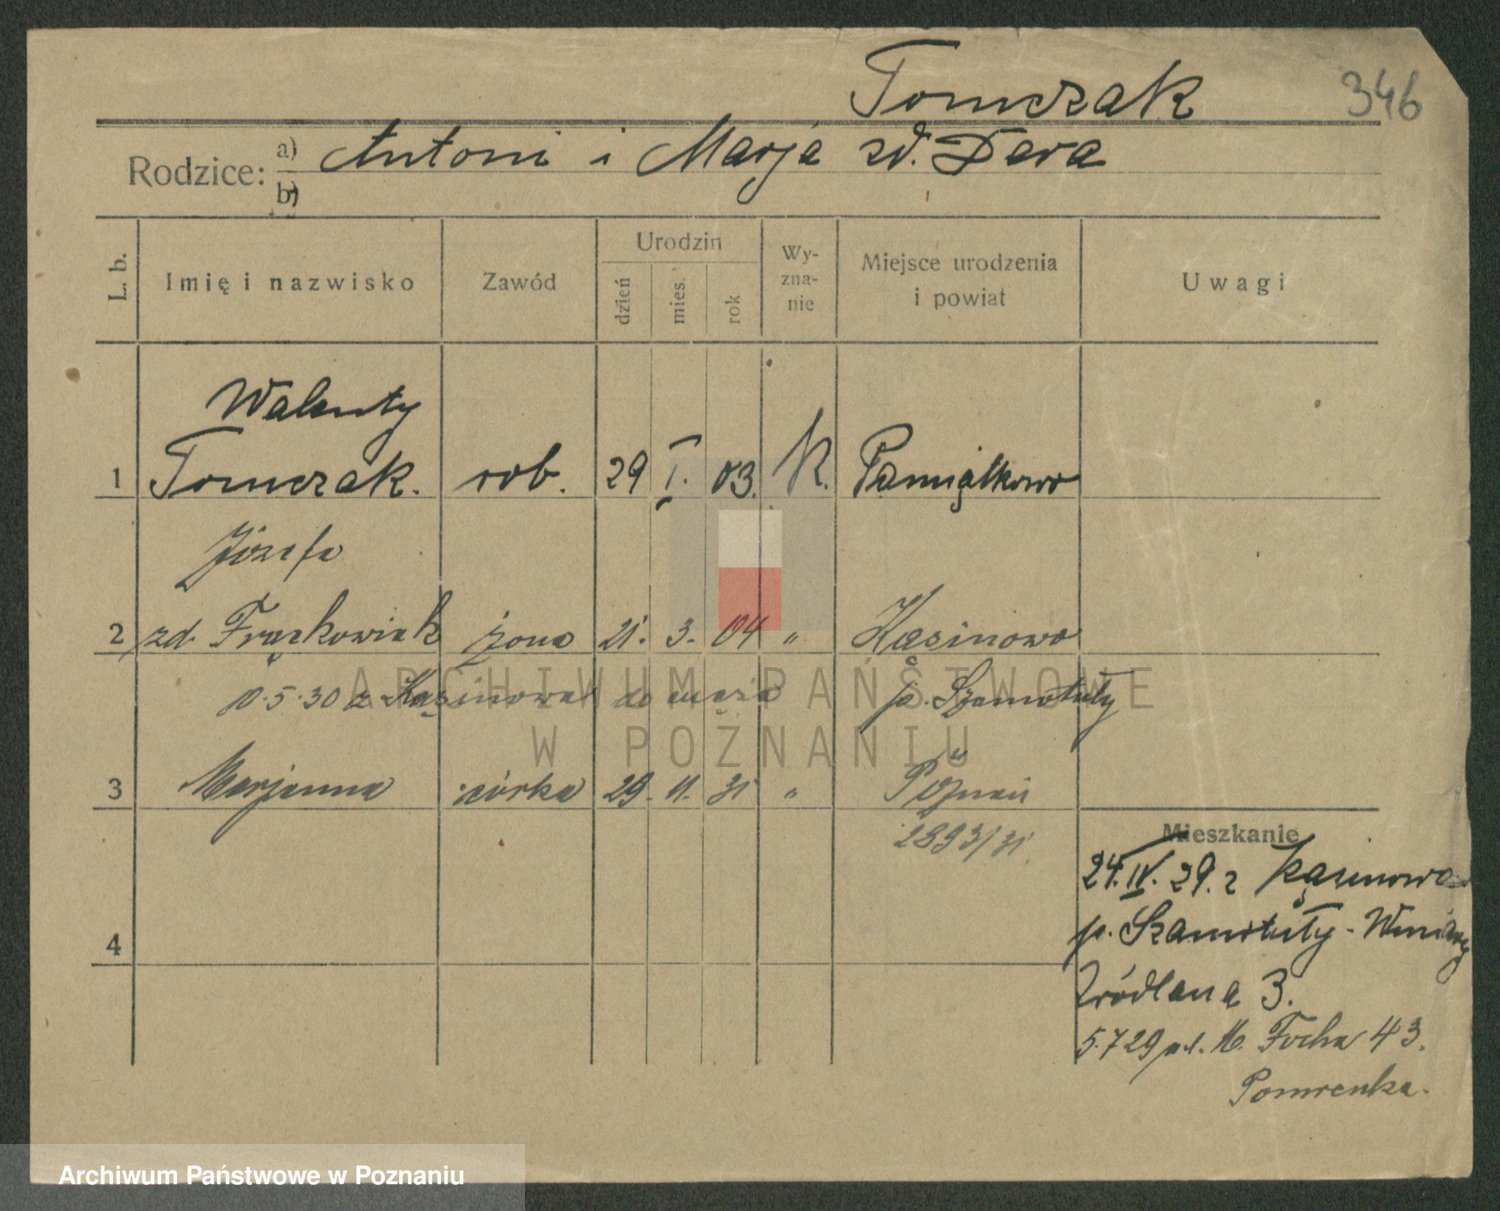 Tomczak
346
Rodzice: a) Antoni i Marja zd. Dera
b)
L. b. Imię i nazwisko Zawód Urodzin dzień mies. rok Wy-zna-nie Miejsce urodzenia i powiat Uwagi
Walenty
1 Tomczak. rob. 29 I. 03. K. Pamiątkowo
Józefa
2 zd. Frąckowiak żona 21. 3. 04 " Kąsinowo
10.5.30 z Kąsinowa do męża p. Szamotuły
ARCHIWUM PAŃSTWOWE
W POZNANIU
3 Marjanna córka 29. 11. 31 " Poznań
2893/31
Mieszkanie
24.IV.29. z Kąsinowa
p. Szamotuły - Winiary
4
Źródlana 3.
5.7 29 M. Focha 43.
Pomrenka.
Archiwum Państwowe w Poznaniu